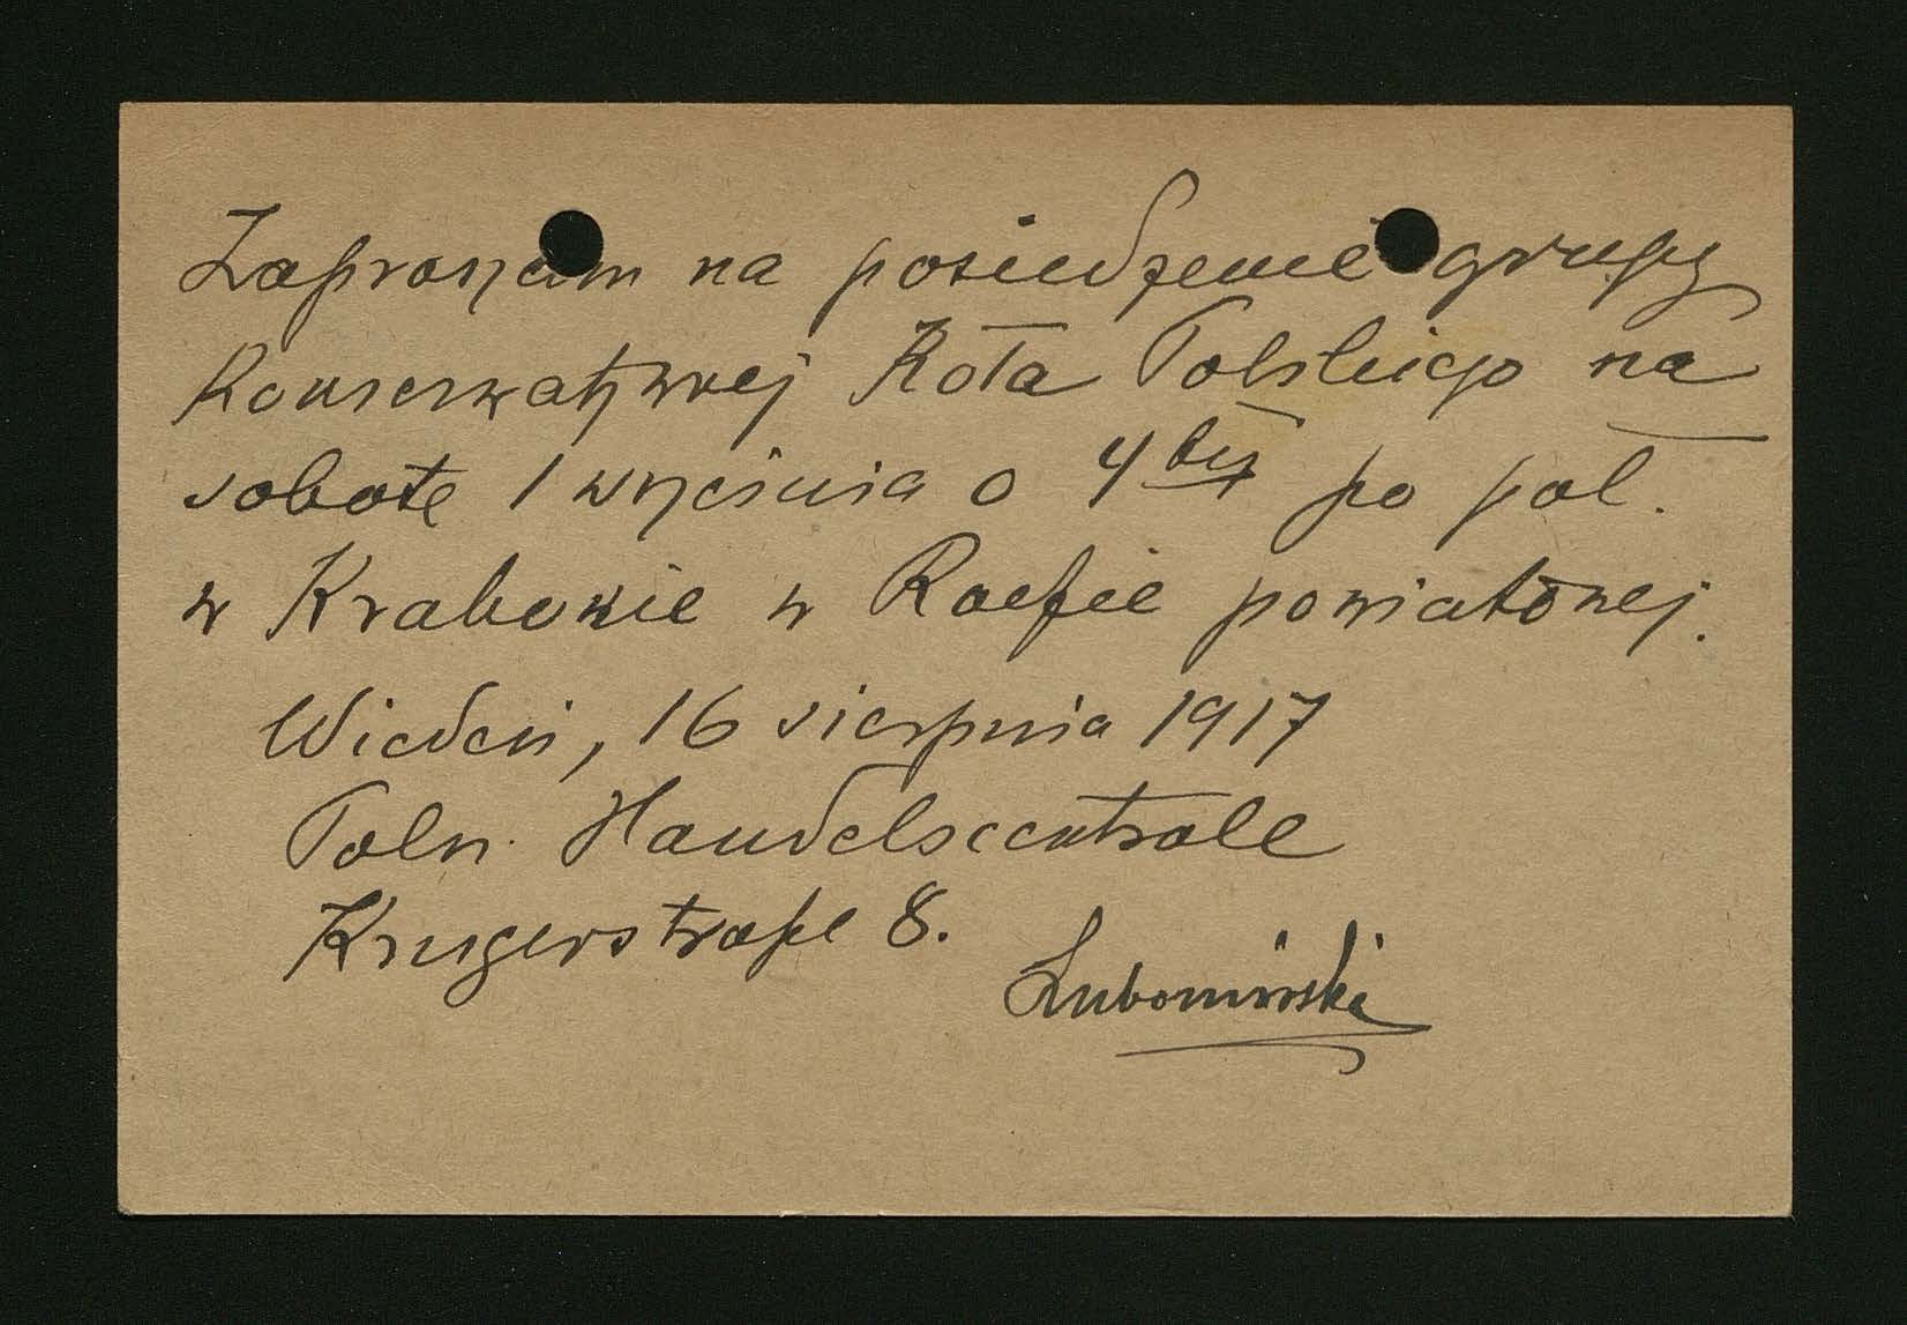 Zapraszam na posiedzenie grupy
Konserwatywnej Koła Polskiego na
sobotę 1 września o 4tej po poł.
w Krakowie w Radzie powiatowej.
Wiedeń, 16 sierpnia 1917
Poln. Handelscentrale
Krugerstraße 8.
Lubomirski